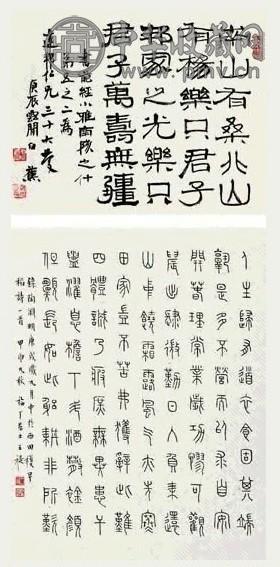 南山有桑北山
有楊樂只君子
邦家之光樂只
君子萬壽無疆
書詩經小雅南陔之什
第五之二為
道親伯兄三十六度
庚辰 白蕉
人生歸有道衣食固其端
孰是都不營而以求自安
開春理常業歲功聊可觀
晨出肆微勤日入負耒還
山中饒霜露風氣亦先寒
田家豈不苦弗獲辭此難
四體誠乃疲庶無異患干
盥濯息檐下斗酒散襟顏
但願長如此躬耕非所歎
錄陶淵明庚戌歲九月中於西田穫早
稻詩一首 甲申九秋 福厂居士王禔